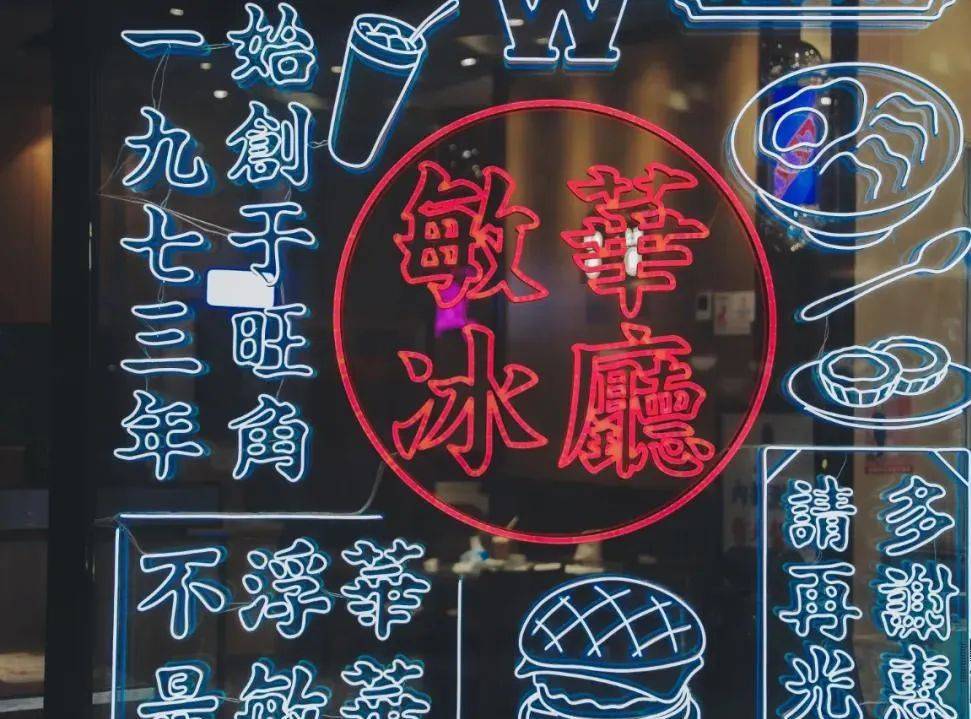 W
始創于旺角
一九七三年
敏華
冰廳
華華
浮敏
不是
多謝惠
請再光